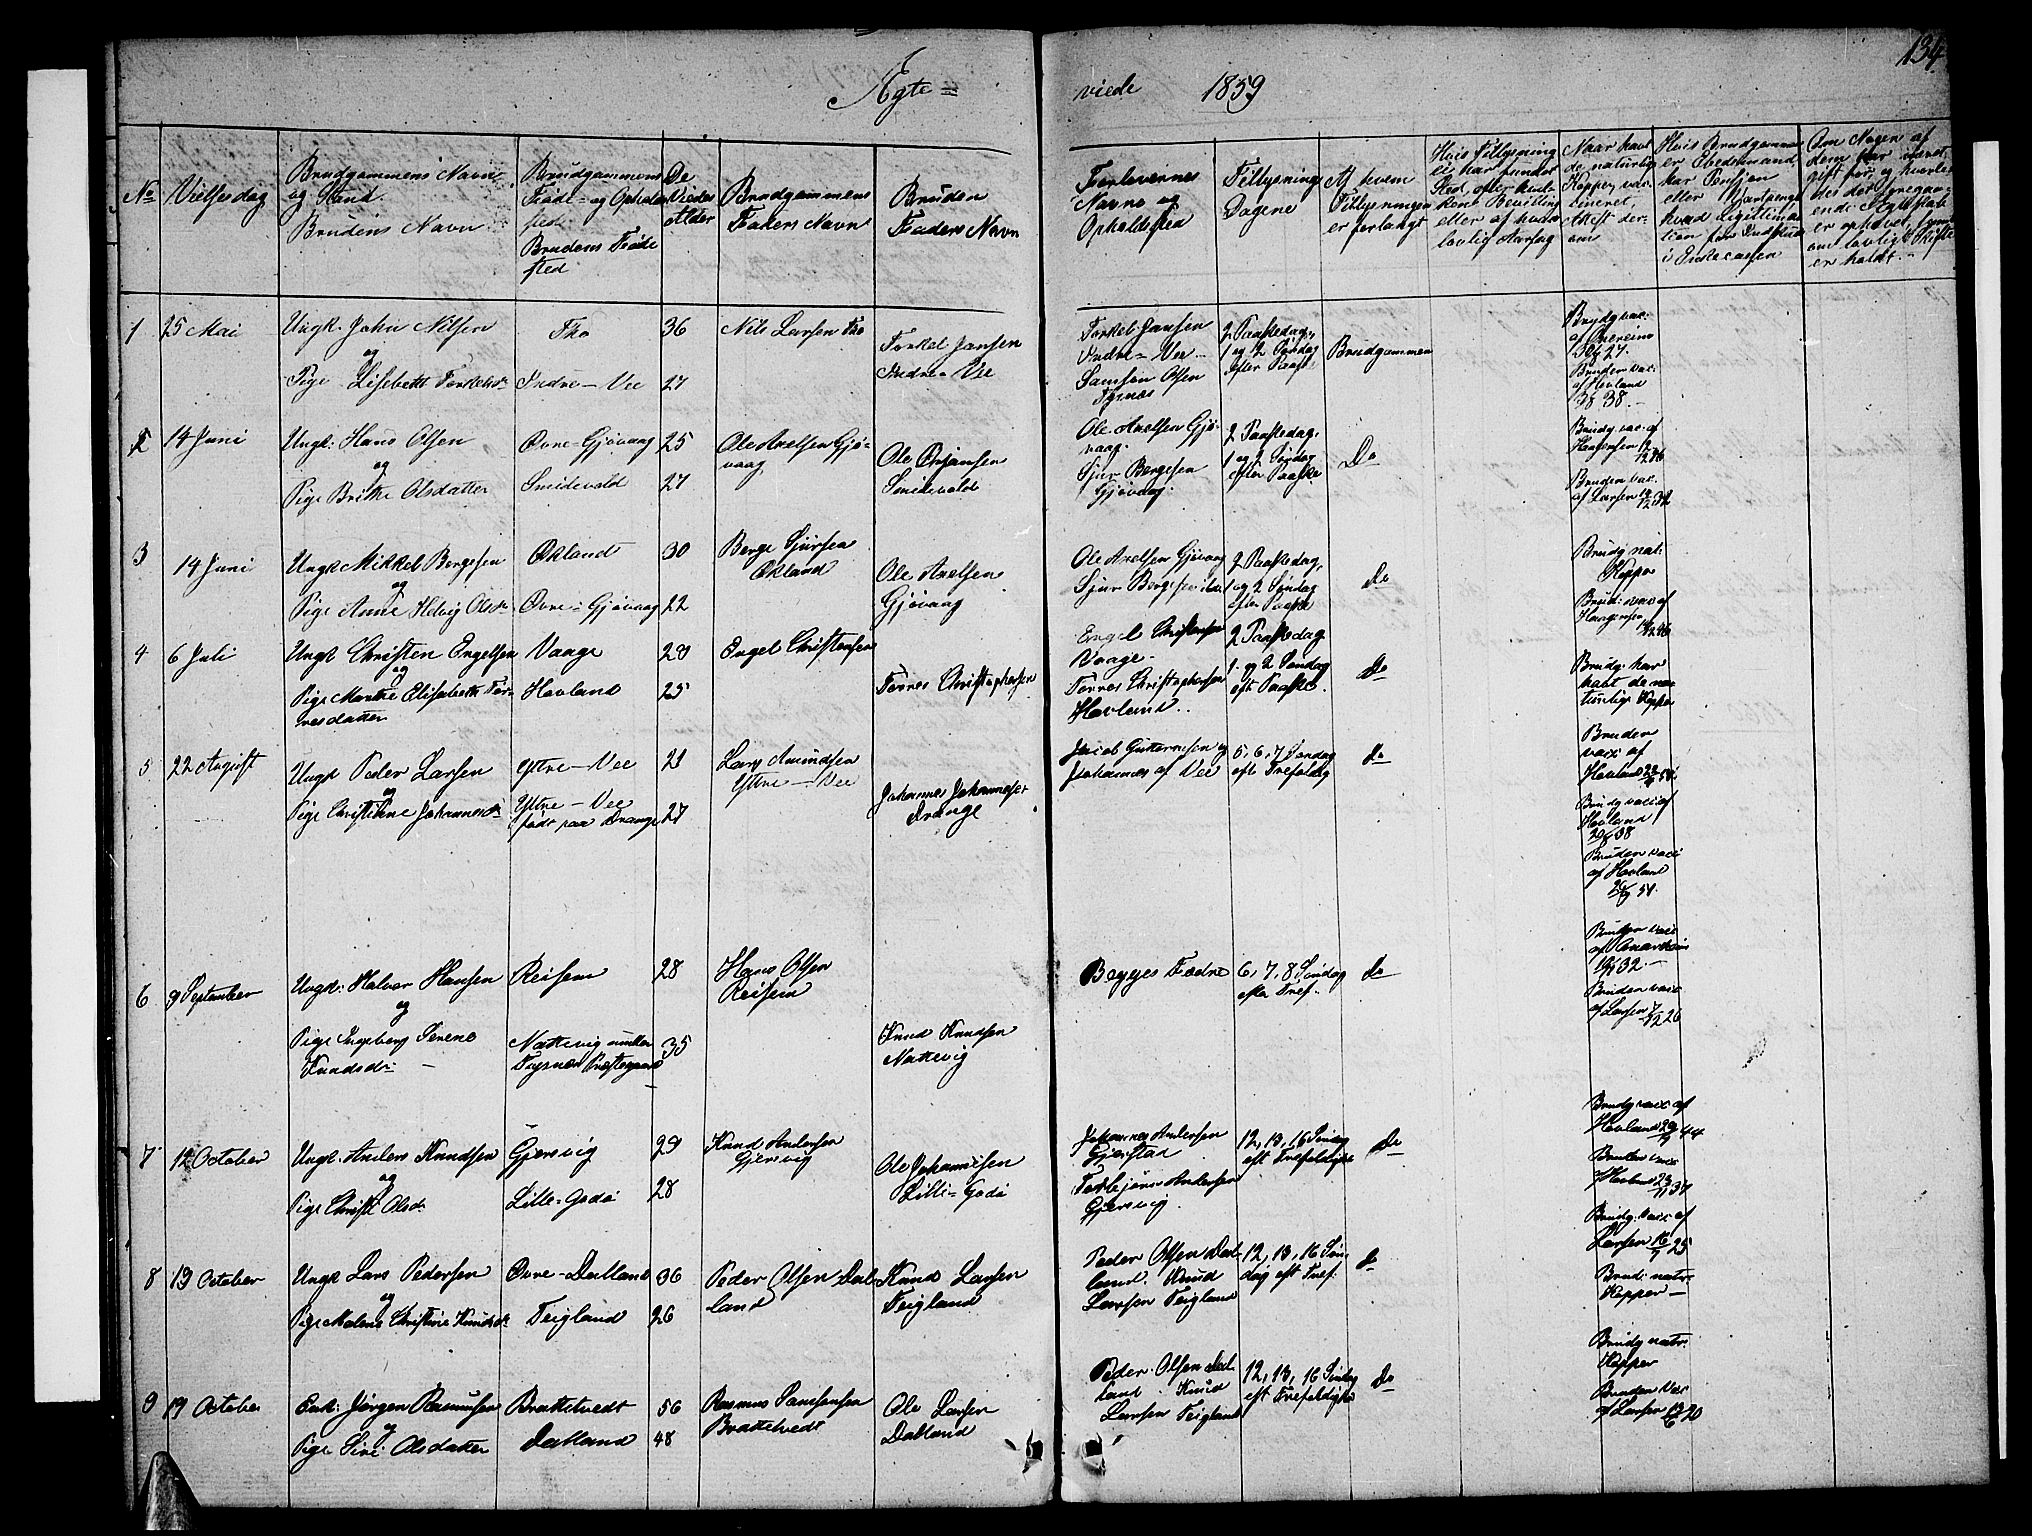 134
Ægte=
viede 1859
No
Vielsesdag
Brudgommens Navn
og Stand.
Brudens Navn
Brudgommens
Føde- og Opholds
sted
Brudens Føde
sted
De
Viedes
Alder
Brudgommens
Faders Navn
Bruden
Faders Navn
Forlovernes
Navne og
Opholdsted
Tillysnings
Dagene
Af hvem
Tillysningen
er forlangt
Hvis Tillysning
ei har fundet
Sted, efter hvil-
ken Bevilling
eller af hvad
lovlig Aarsag
Naar havt
de naturlig
Kopper, vac-
cineret,
Attest der-
om
Hvis Brudgommen
er
har Pension
eller
hvad Legitima-
tion for Indskud
i Enkecassen
Om Nogen af
dem før været
gift før, og hvorle-
des det foregaa-
ende Ægteskab
er ophævet, samt
om lovligt Skifte
er holdt.
1
25 Mai
Ungk. John Nilsen
og
Pige Lisebeth Torkelsdr
Tho
Indre-Vee
36
27
Nils Larsen Tho
Torkel Jansen
Indre-Vee
Torkel Jansen
Indre-Vee
Samson Olsen
Tysnæs
2 Paaskedag,
1 og 2 Søndag
efter Paaske
Brudgommen
Brudg vac:
27.
Bruden vac:
af Hovland
38.
2
14 Juni
Ungk: Hans Olsen
og
Pige Brithe Olsdatter
Øvre-Gjøvaag
Smidevold
25
27
Ole Axelsen Gjø-
vaag
Ole Ørjansen
Smidevold
Ole Axelsen Gjø-
vaag.
Sjur Bergesen
Gjøvaag.
2 Paaskedag,
1 og 2 Søndag
efter Paaske
Do
Brudg vac. af
Bruden vac.
af Larsen
3
14 Juni
Ungk Mikkel Bergesen
og
Pige Anne Helvig Olsdr
Økland
Øvre-Gjøvaag
30
22
Berge Sjursen
Økland
Ole Axelsen
Gjøvaag
Ole Axelsen Gjøvaag
Sjur Bergesen
2 Paaskedag,
1 og 2 Søndag
efter Paaske
do
Brudg nat:
Kopper
Brud: vacc af
4
6 Juli
Ungk Christen Engelsen
og
Pige Marthe Elisabeth Tør-
resdatter
Vaage
Hovland
28
25
Engel Christensen
Tørres Christophersen
Engel Christensen
Vaage-
Tørres Christophersen
Hovland.
2 Paaskedag
1. og 2 Søndag
eft Paaske.
Do
Brudg: har
havt de na-
turlige Kopper
Bruden
vacc af
Hovland
5
22 August
Ungk Peder Larsen
og
Pige Christine Johannesdr
Yttre-Vee
Yttre-Vee
født paa Drange
21
27
Lars Amundsen
Yttre-Vee
Johannes Johannesen
Drange
Jacob Guttormsen og
Johannes af Vee
5, 6, 7 Søndag
eft Trefoldig
do
Brudg vacc af
Hovland
38
Bruden vacc
af Hovland
51.
6
9 September
Ungk: Halvor Hansen
og
Pige Ingeborg Serene
Knudsdr
Reisem
Nattevig under
Tysnæs Præstegaard
28
35
Hans Olsen
Reisem
Knud Knudsen
Nattevig
Begges Fædre
6, 7, 8 Søndag
efter Tref.
do
32.
Bruden vacc
af Larsen
26
7
12 October
Ungk: Anders Knudsen
og
Pige Christi Olsdr
Gjersvig
Lille-Godø
29
28
Knud Andersen
Gjersvig
Ole Johannesen
Lille-Godø
Johannes Andersen
Gjerstad
Torbjørn Andersen
Gjersvig.
12, 13, 16 Søndag
eft Trefoldighe
Do
Brudg vacc af
Hovland 44
Bruden vacc
Hovland 37
8
13 October
Ungk Lars Pedersen
og
Pige Malene Christine Knudsdr
Øvre-Dalland
Teigland
36
26
Peder Olsen Dal-
land
Knud Larsen
Teigland
Peder Olsen Dal-
land. Knud
Larsen Teigland
12, 13, 16 Søn-
dag eft Tref.
do
Brudg: vacc af
Larsen 25
Brud: natr.
Kopper-
9
19 October
Enk: Jørgen Rasmusen
og
Pige Siri Olsdatter
Brattetvedt
Dalland
56
48
Rasmus
Brattetvedt
Ole Larsen
Dalland
Peder Olsen Dal-
land. Knud
Larsen Teigland
12, 13, 16 Søndag
eft Trefoldighe
Do
Brudg natr.
Kopper
Bruden vac
af Larsen 20